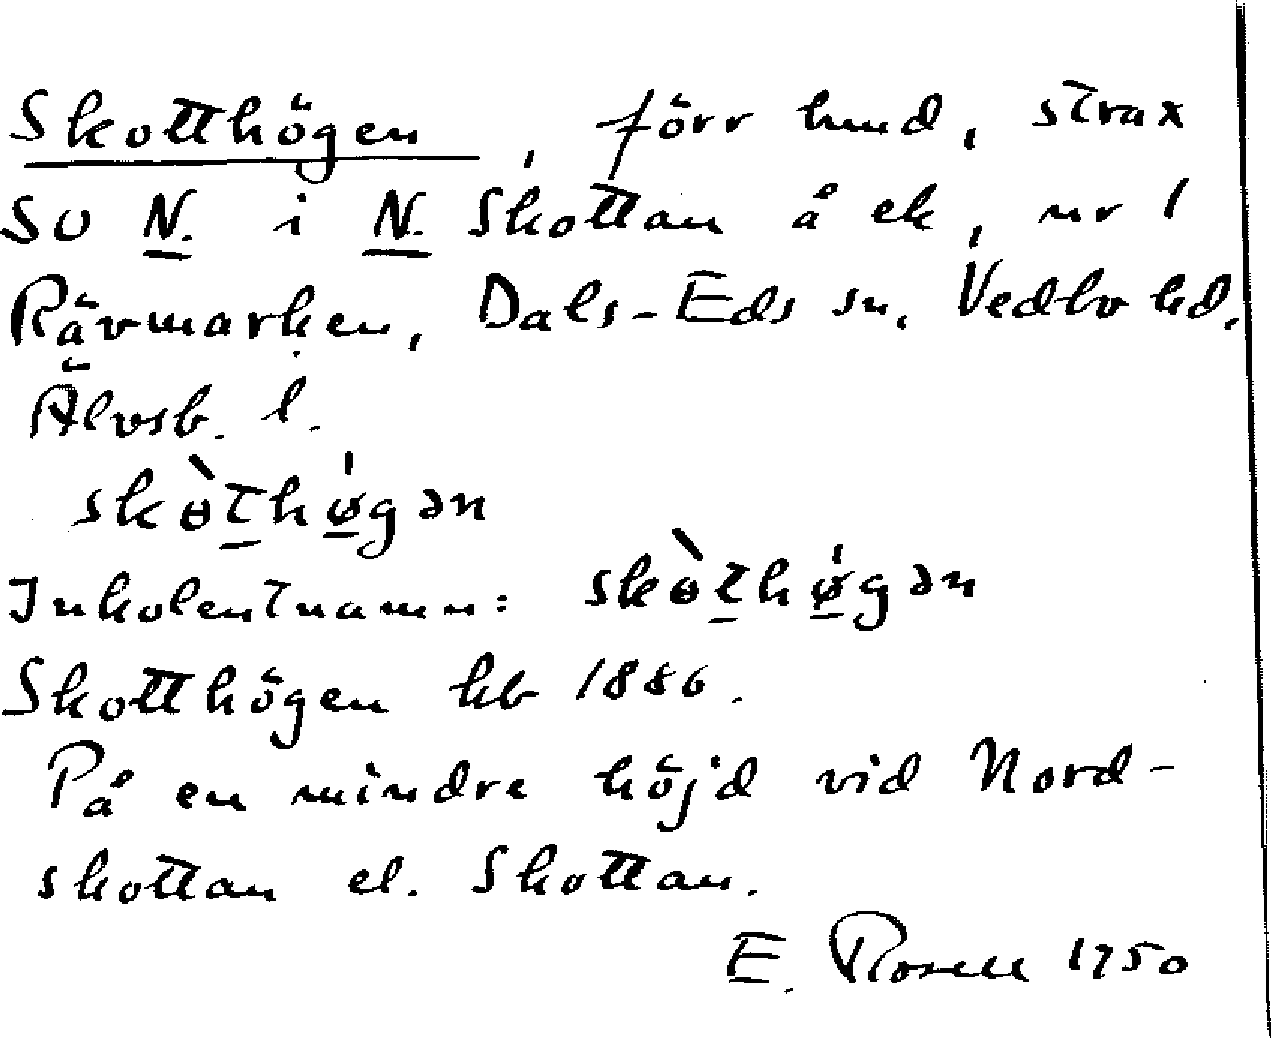 Skotthögen, förr hmd, strax
SO N. i N. Skottan å ek, nr 1
Rävmarken, Dals-Eds sn, Vedbo hd,
Älvsb. l.
skɵ̀thø̍gən
Inkolentnamn: skɵ̀thø̍gən
Skotthögen kb 1886.
På en mindre höjd vid Nord-
skottan el. Skottan.
E. Rosell 1950